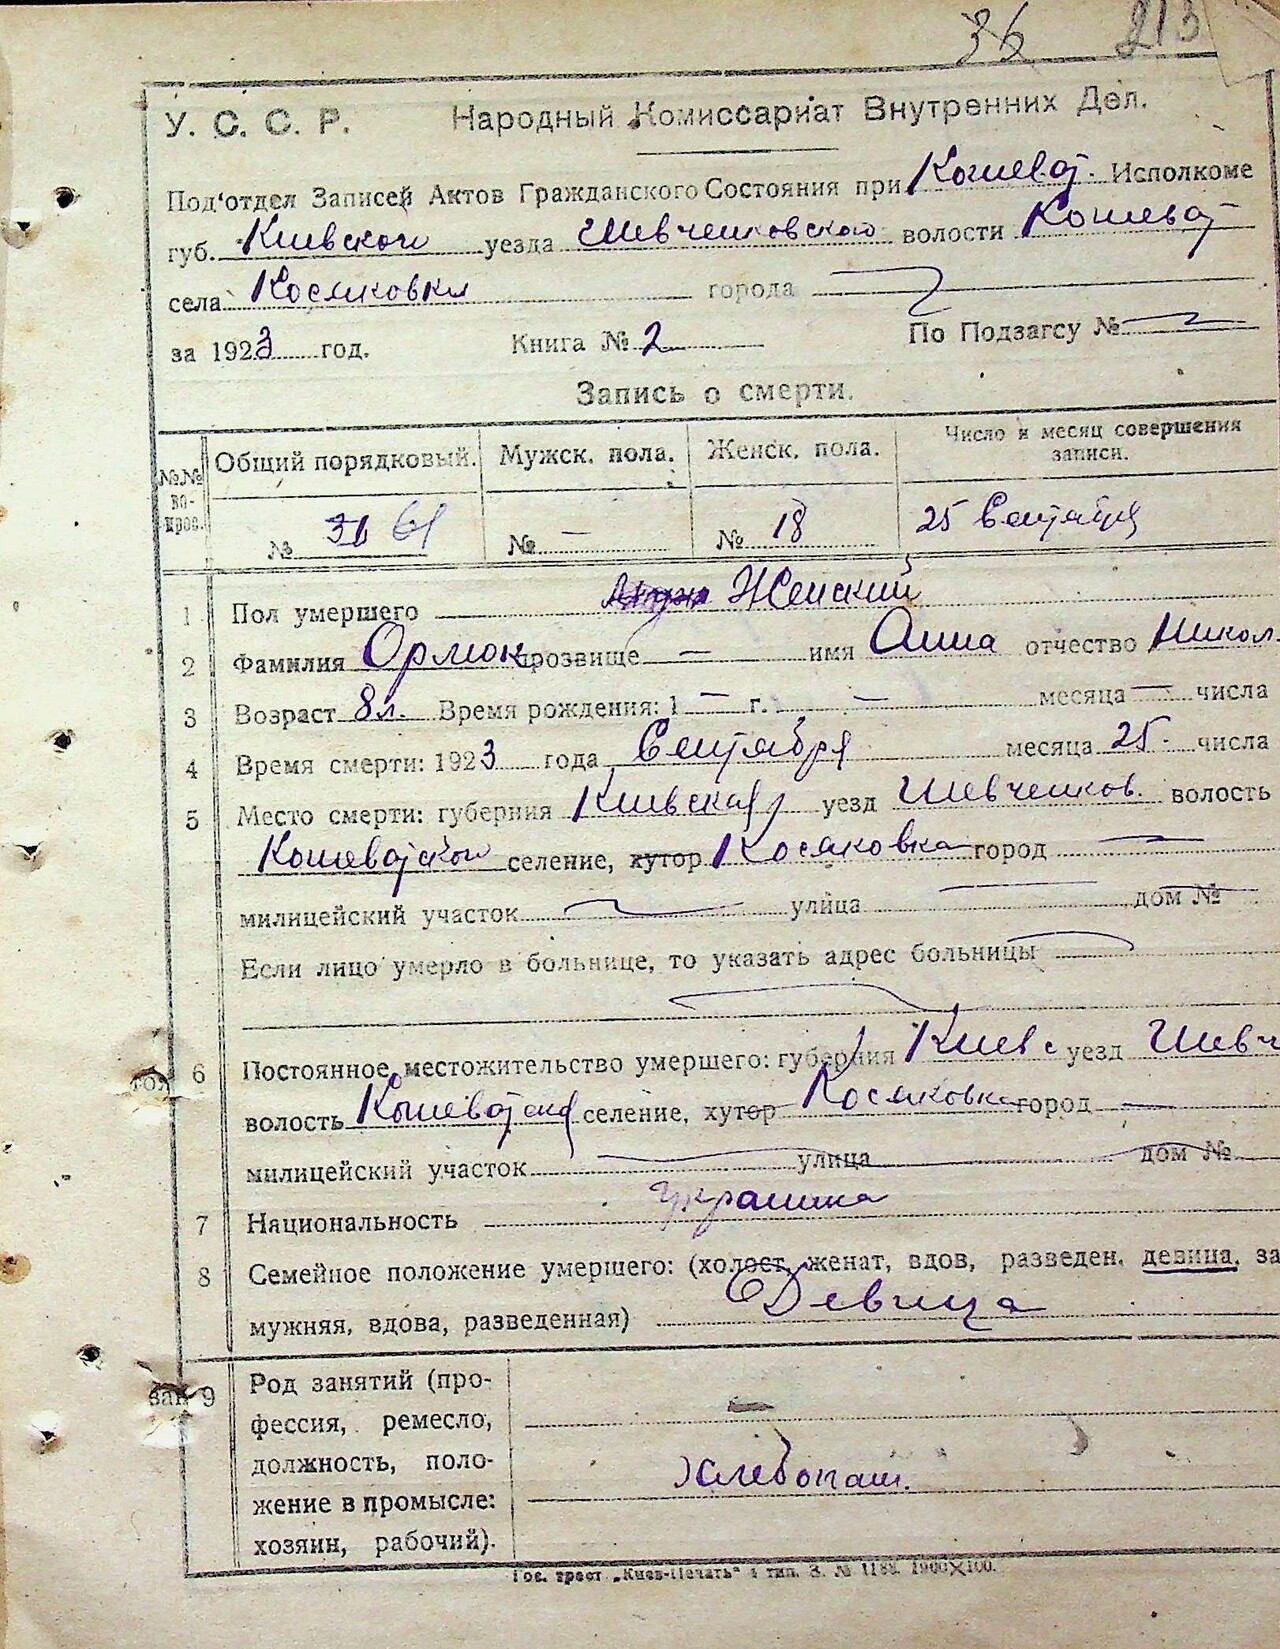 36 213
У. С. С. Р. Народный Комиссариат Внутренних Дел.
Под‘отдел Записей Актов Гражданского Состояния при Кошеват. Исполкоме
губ. Киевского уезда Шевченковского волости Кошеват
села Косяковки города
за 1923 год. Книга № 2 По Подзагсу №
Запись о смерти.
№№ во-прос. Общий порядковый. Мужск. пола. Женск. пола. Число и месяц совершения записи.
№ 31 61 № — № 18 25 Сентября
1 Пол умершего Женский
2 Фамилия Ормок прозвище — имя Анна отчество Никол.
3 Возраст 8 л. Время рождения: 1 — г. — месяца — числа
4 Время смерти: 1923 года Сентября месяца 25 числа
5 Место смерти: губерния Киевская уезд Шевченков. волость
Кошеватской селение, хутор Косяковка город —
милицейский участок улица дом №
Если лицо умерло в больнице, то указать адрес больницы
6 Постоянное местожительство умершего: губерния Киевс уезд Шевч
волость Кошеватской селение, хутор Косяковка город —
милицейский участок улица дом №
7 Национальность Украинка
8 Семейное положение умершего: (холост, женат, вдов, разведен, девица, за
мужняя, вдова, разведенная) Девица
9 Род занятий (про-
фессия, ремесло, —
должность, поло-
жение в промысле: Хлебопаш.
хозяин, рабочий).
Гос. трест „Киев-Печать“ 4 тип. З. № 1188. 1900×100.